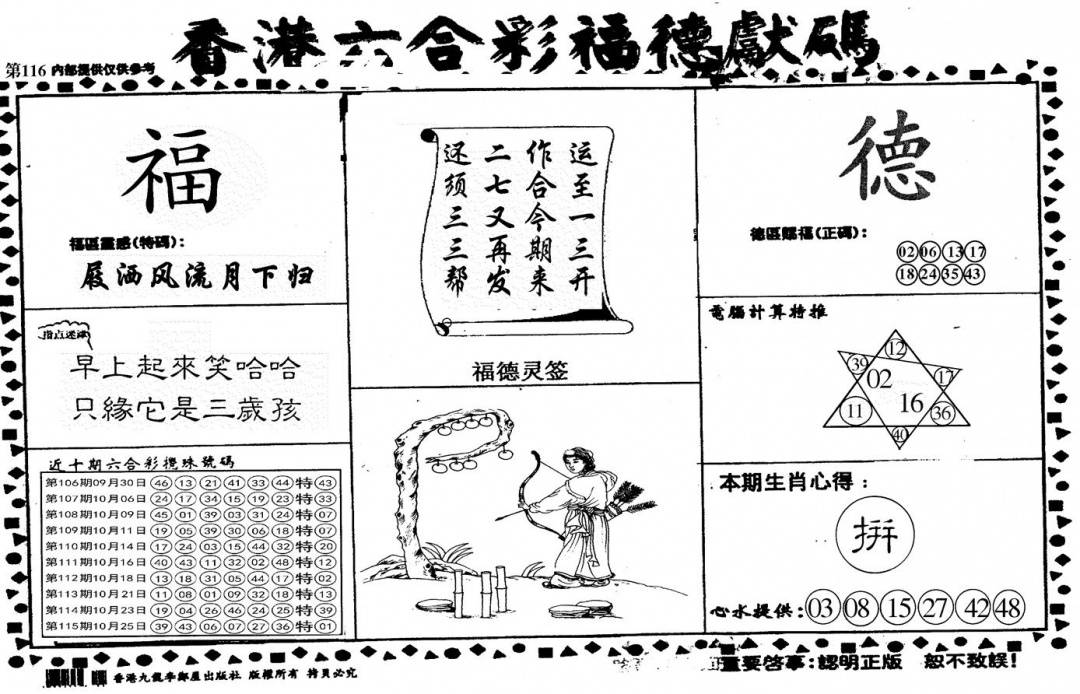 香港六合彩福德獻碼
第116 内部提供仅供参考
福
福區靈感(特碼):
屐洒风流月下归
指点迷津
早上起來笑哈哈
只緣它是三歲孩
近十期六合彩攪珠號碼
第106期09月30日 46 13 21 41 33 44 特 43
第107期10月06日 24 17 34 15 19 23 特 33
第108期10月09日 45 01 39 03 31 24 特 07
第109期10月11日 19 05 39 30 06 18 特 07
第110期10月14日 17 24 03 15 44 32 特 20
第111期10月16日 40 43 11 32 02 48 特 12
第112期10月18日 13 18 31 05 44 17 特 02
第113期10月21日 11 08 01 09 32 18 特 13
第114期10月23日 19 04 26 46 24 25 特 39
第115期10月25日 39 43 06 07 27 36 特 01
运至一三开
作合今期来
二七又再发
还须三三帮
福德灵签
德
德區賜福(正碼):
02 06 13 17
18 24 35 43
電腦計算特推
12
39 02 17
11 16 36
40
本期生肖心得:
拼
心水提供: 03 08 15 27 42 48
香港九龍李鄭屋出版社 版權所有 拷貝必究
重要啓事:認明正版 恕不致誤!